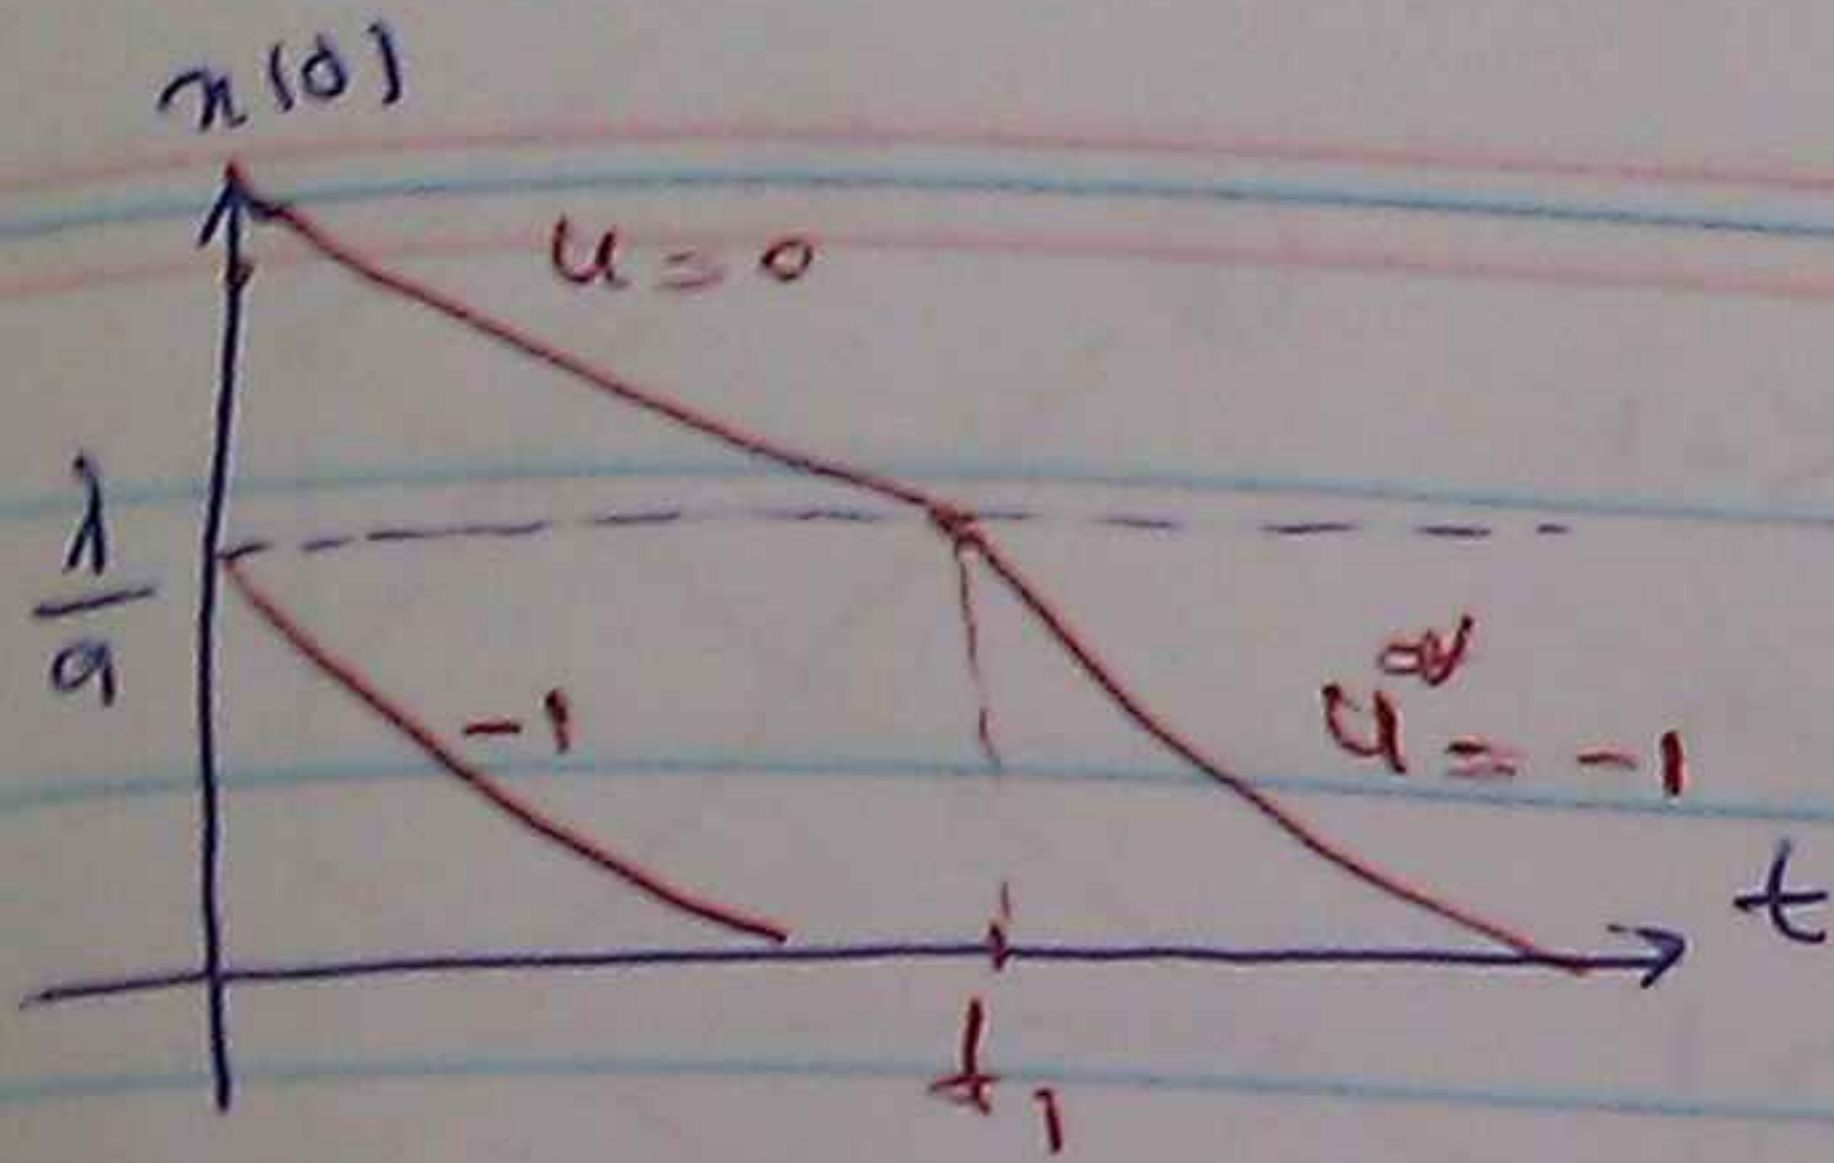 x(0)
u = 0
λ/a
-1
u = -1
t
t1